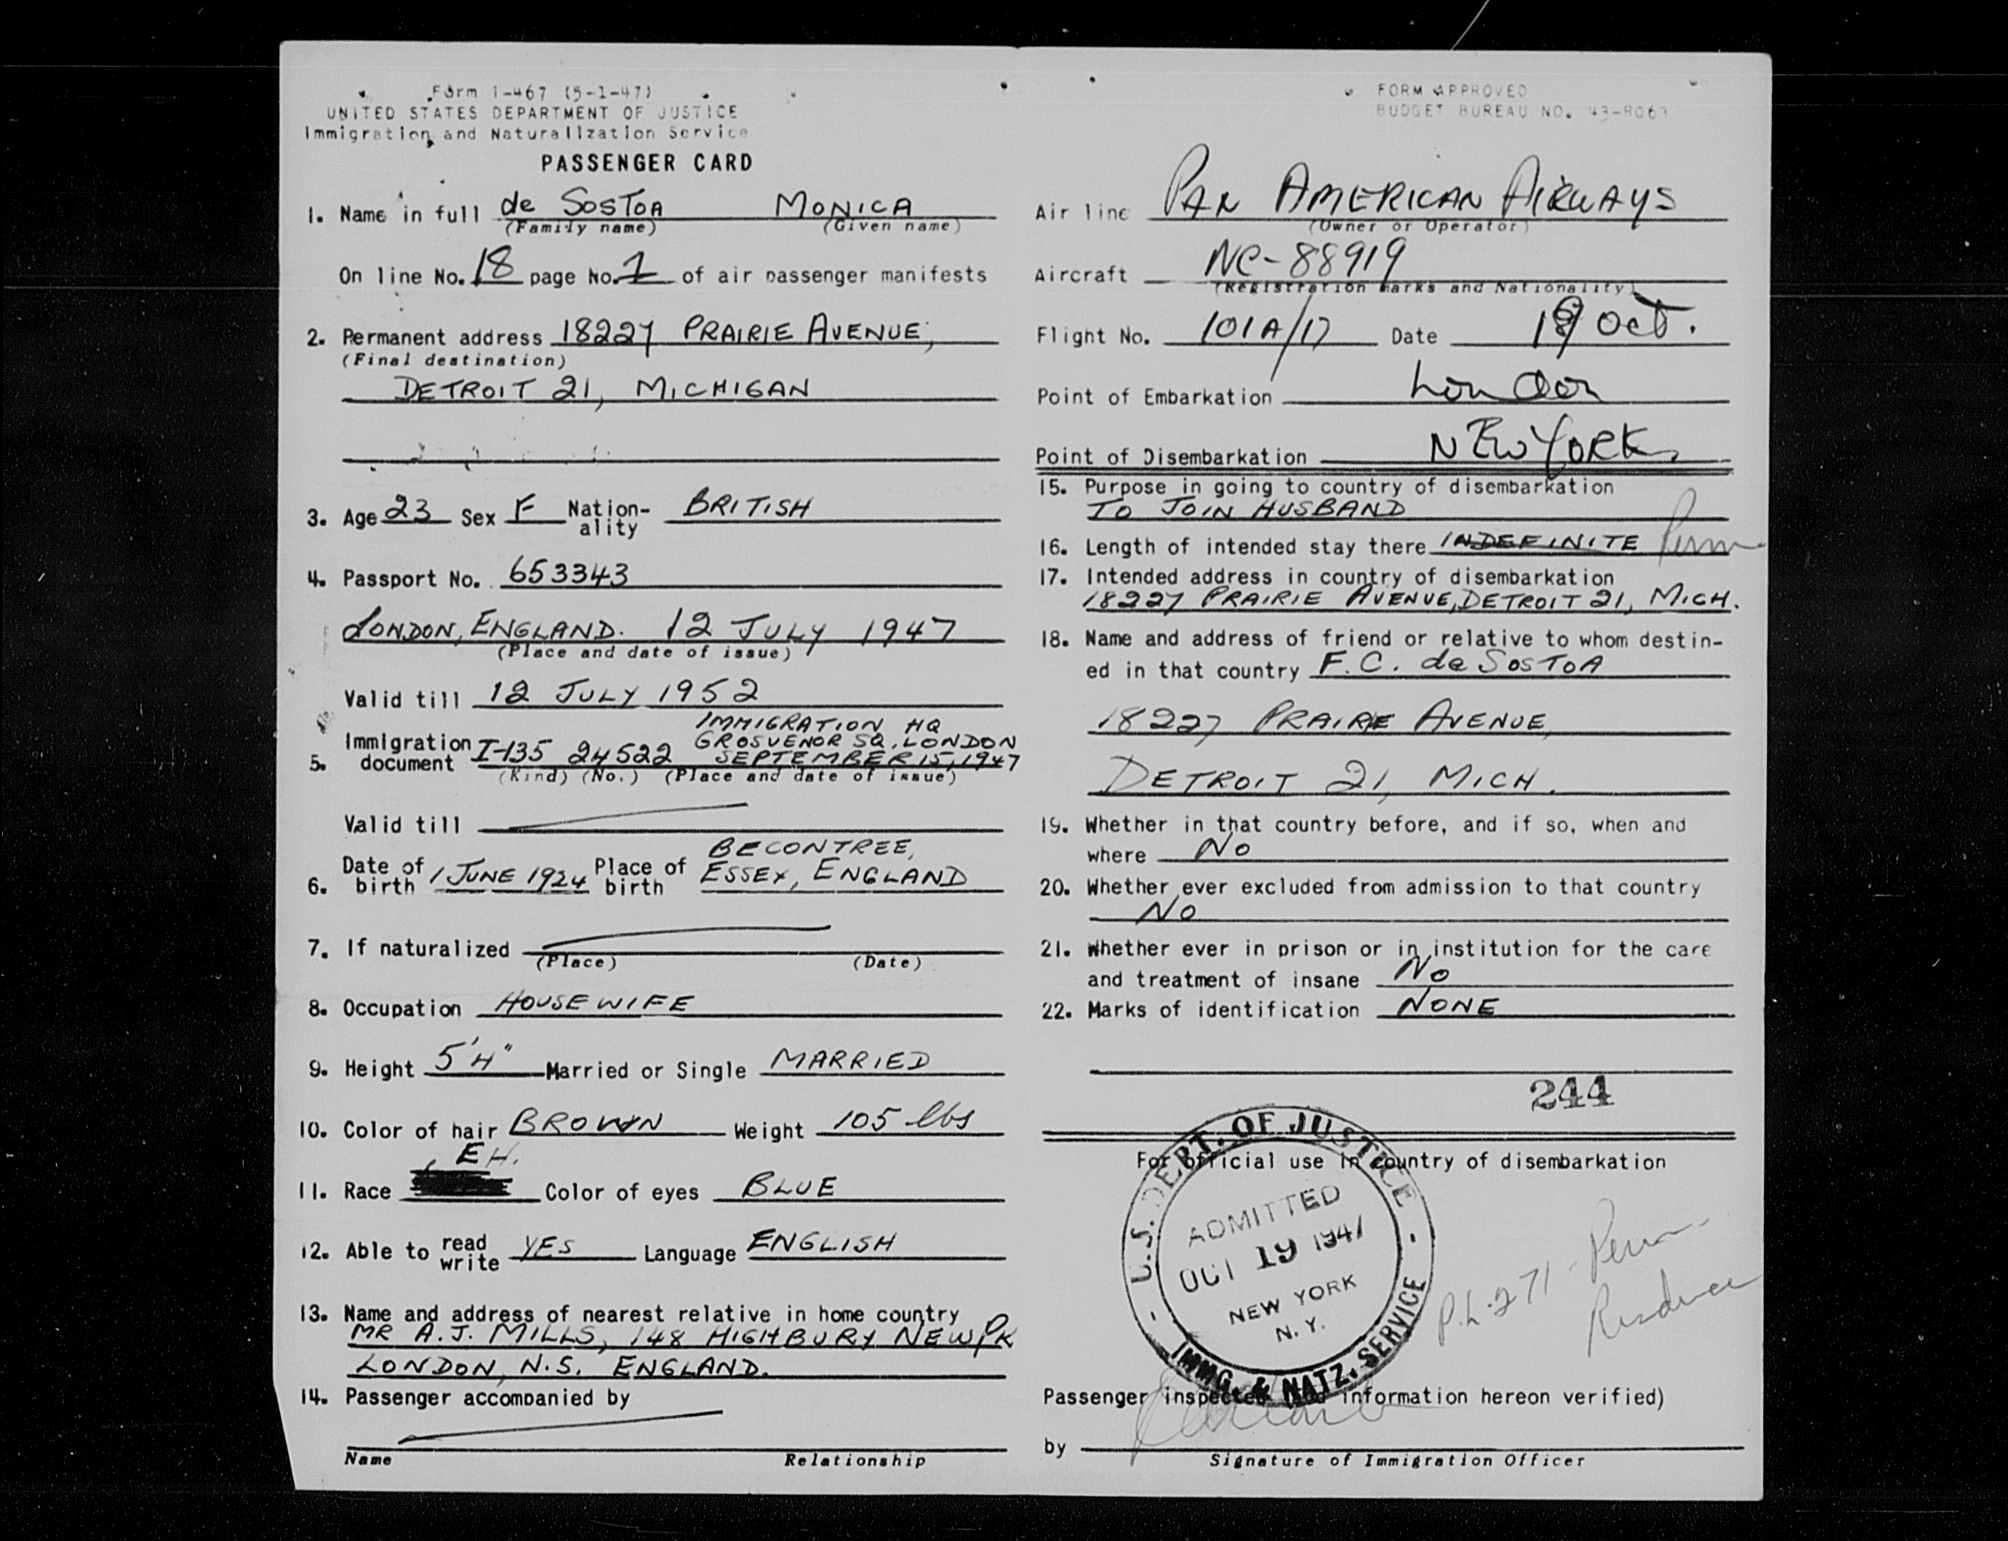 Form I-467 (5-1-47)
UNITED STATES DEPARTMENT OF JUSTICE
Immigration and Naturalization Service
PASSENGER CARD
1. Name in full de SOSTOA MONICA
(Family name) (Given name)
On line No. 18 page No. 1 of air passenger manifests
2. Permanent address 18227 PRAIRIE AVENUE,
(Final destination)
DETROIT 21, MICHIGAN
3. Age 23 Sex F Nation-ality BRITISH
4. Passport No. 653343
LONDON, ENGLAND. 12 JULY 1947
(Place and date of issue)
Valid till 12 JULY 1952
IMMIGRATION HQ
GROSVENOR SQ. LONDON
5. Immigration document I-135 24522 SEPTEMBER 15, 1947
(Kind) (No.) (Place and date of issue)
Valid till
BECONTREE,
6. Date of birth 1 JUNE 1924 Place of birth ESSEX, ENGLAND
7. If naturalized
(Place) (Date)
8. Occupation HOUSEWIFE
9. Height 5'4" Married or Single MARRIED
10. Color of hair BROWN Weight 105 lbs
EH.
11. Race Color of eyes BLUE
12. Able to read write YES Language ENGLISH
13. Name and address of nearest relative in home country
MR A.J. MILLS, 148 HIGHBURY NEW PK
LONDON, N.5. ENGLAND.
14. Passenger accompanied by
Name Relationship
FORM APPROVED
BUDGET BUREAU NO. 43-R063
Air line PAN AMERICAN AIRWAYS
(Owner or Operator)
Aircraft NC-88919
(Registration marks and Nationality)
Flight No. 101A/17 Date 19 Oct.
Point of Embarkation London
Point of Disembarkation NEW YORK
15. Purpose in going to country of disembarkation
TO JOIN HUSBAND
16. Length of intended stay there INDEFINITE Perm
17. Intended address in country of disembarkation
18227 PRAIRIE AVENUE, DETROIT 21, MICH.
18. Name and address of friend or relative to whom destin-
ed in that country F.C. de SOSTOA
18227 PRAIRIE AVENUE,
DETROIT 21, MICH.
19. Whether in that country before, and if so, when and
where NO
20. Whether ever excluded from admission to that country
NO
21. Whether ever in prison or in institution for the care
and treatment of insane NO
22. Marks of identification NONE
244
For official use in country of disembarkation
U.S. DEPT. OF JUSTICE
ADMITTED
OCT 19 1947
NEW YORK
N.Y.
IMMG. & NATZ. SERVICE
P.L. 271 - Perm
Residence
Passenger inspected and information hereon verified)
by
Signature of Immigration Officer